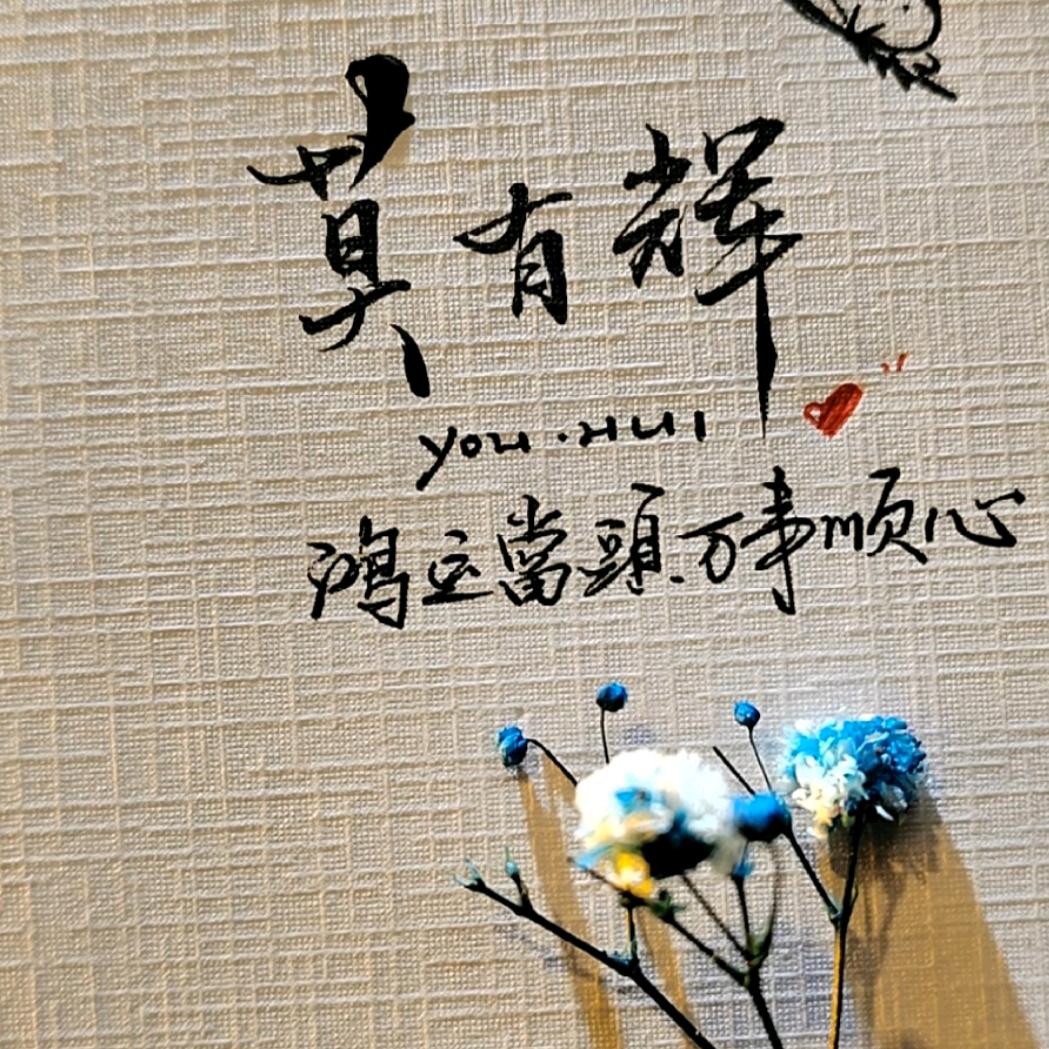 莫有辉
YOU·HUI
鸿运當頭.万事顺心